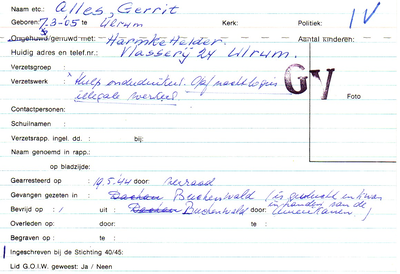 Naam etc.: Alles, Gerrit IV
Geboren: 7.3-'05 te Ulrum Kerk: Politiek:
Ongehuwd/gehuwd met: Harmke Helder. Aantal kinderen:
Huidig adres en telef.nr.: Vlasserij 24 Ulrum.
Verzetsgroep :
Verzetswerk : Hulp onderduikers. Gaf nachtlogies GV Foto
illegale werkers.
Contactpersonen:
Schuilnaam :
Verzetsrapp. ingel. dd. : bij:
Naam genoemd in rapp.:
op bladzijde:
Gearresteerd op : 19.5.'44 door: verraad
Gevangen gezeten in : Dachau Buchenwald (is gevlucht en kwam
in handen van de
Bevrijd op : / uit : Dachau Buchenwald door: Amerikanen.)
Overleden op: door: te :
Begraven op : te :
Ingeschreven bij de Stichting 40/45:
Lid G.O.I.W. geweest: Ja / Neen